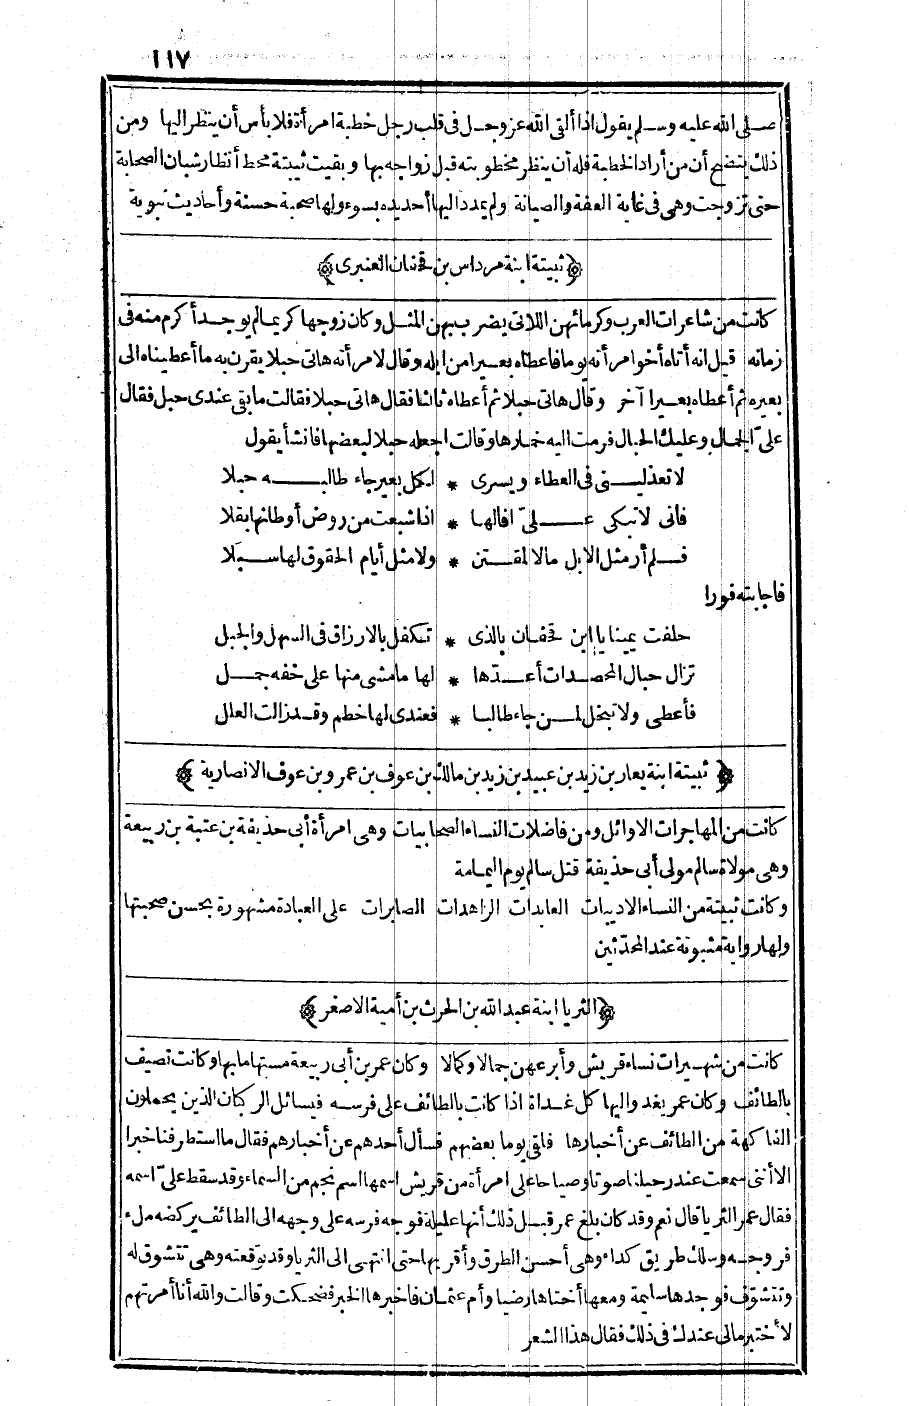 ١١٧
صلى الله عليه وسلم يقول اذا ألقى الله عز وجل فى قلب رجل خطبة امرأة فلا بأس أن ينظر اليها ومن
ذلك يتضح أن من أراد الخطبة فله أن ينظر مخطوبته قبل زواجه بها وبقيت ثبيتة محط أنظار شبان الصحابة
حتى تزوجت وهى فى غاية العفة والصيانة ولم يمدد اليها أحد يده بسوء ولها صحبة حسنة وأحاديث نبوية
﴿ثبيتة ابنة مرداس بن قحفان العنبرى﴾
كانت من شاعرات العرب وكرمائهن اللاتى يضرب بهن المثل وكان زوجها كريما لم يوجد أكرم منه فى
زمانه قيل انه أتاه أخو امرأته يوما فاعطاه بعيرا من ابله وقال لامرأته هاتى حبلا يقرن به ما أعطيناه الى
بعيره ثم أعطاه بعيرا آخر وقال هاتى حبلا ثم أعطاه ثالثا فقال هاتى حبلا فقالت ما بقى عندى حبل فقال
علىّ الجمال وعليك الحبال فرمت اليه خمارها وقالت اجعله حبلا لبعضها فانشأ يقول
لا تعذلينى فى العطاء ويسرى * لكل بعير جاء طالبه حبلا
فانى لا تبكى علىّ افالها * اذا شبعت من روض أوطانها بقلا
فلم أر مثل الابل مالا لمقتن * ولا مثل أيام الحقوق لها سبلا
فاجابته فورا
حلفت يمينا يا ابن قحفان بالذى * تكفل بالارزاق فى السهل والجبل
تزال حبال المحصدات أعدّها * لها ما مشى منها على خفه جمل
فأعطى ولا تبخل لمن جاء طالبا * فعندى لها خطم وقد زالت العلل
﴿ثبيتة ابنة يعار بن زيد بن عبيد بن زيد بن مالك بن عوف بن عمرو بن عوف الانصارية﴾
كانت من المهاجرات الاوائل ومن فاضلات النساء الصحابيات وهى امرأة أبى حذيفة بن عتبة بن ربيعة
وهى مولاة سالم مولى أبى حذيفة قتل سالم يوم اليمامة
وكانت ثبيتة من النساء الاديبات العابدات الزاهدات الصابرات على العبادة مشهورة بحسن صحبتها
ولها رواية مثبوتة عند المحدّثين
﴿الثريا ابنة عبد الله بن الحرث بن أمية الاصغر﴾
كانت من شهيرات نساء قريش وأبرعهن جمالا وكمالا وكان عمر بن أبى ربيعة مستهاما بها وكانت تصيف
بالطائف وكان عمر يغدو اليها كل غداة اذا كانت بالطائف على فرسه فيسائل الركبان الذين يحملون
الفاكهة من الطائف عن أخبارها فلقى يوما بعضهم فسأل أحدهم عن أخبارهم فقال ما استطرفنا خبرا
الا أننى سمعت عند رحيلنا صوتا وصياحا على امرأة من قريش اسمها اسم نجم من السماء وقد سقط علىّ اسمه
فقال عمر الثريا قال نعم وقد كان بلغ عمر قبل ذلك أنها عليلة فوجه فرسه على وجهه الى الطائف يركضه ملء
فروجه وسلك طريق كداء وهى أحسن الطرق وأقربها حتى انتهى الى الثريا وقد توقعته وهى تتشوق له
وتتشوّف فوجدها سليمة ومعها أختاها رضيا وأم عثمان فاخبرها الخبر فضحكت وقالت والله أنا أمرتهم
لأختبر مالى عندك فى ذلك فقال هذا الشعر